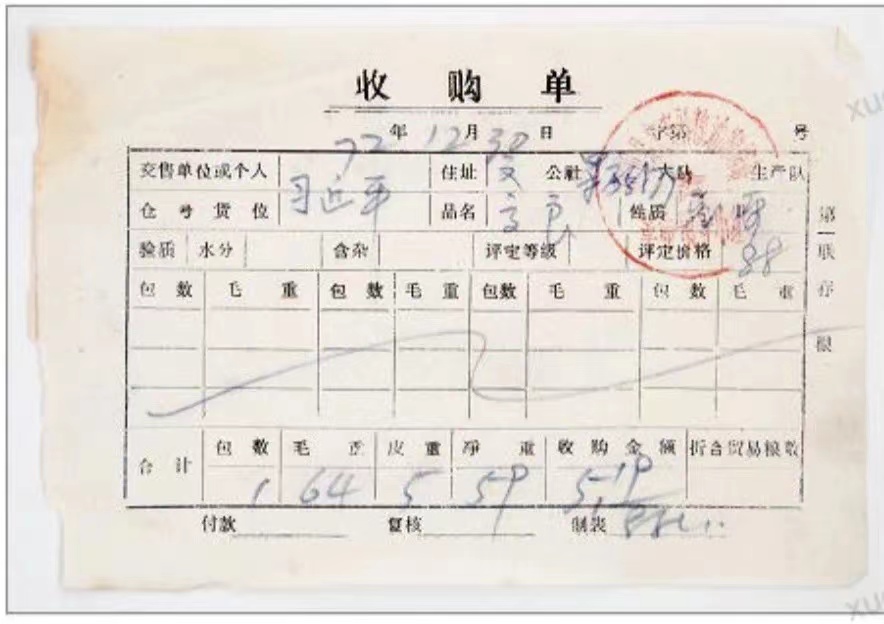 收购单
72年12月30日 字第 号
交售单位或个人 习近平 住址 文 公社 大队 生产队
仓号货位 品名 高 性质
验质 水分 含杂 评定等级 评定价格 88
包数 毛重 包数 毛重 包数 毛重 包数 毛重
合计 包数 毛重 皮重 净重 收购金额 折合贸易粮数
1 64 5 59 5.19
付款 复核 制表
第一联存根